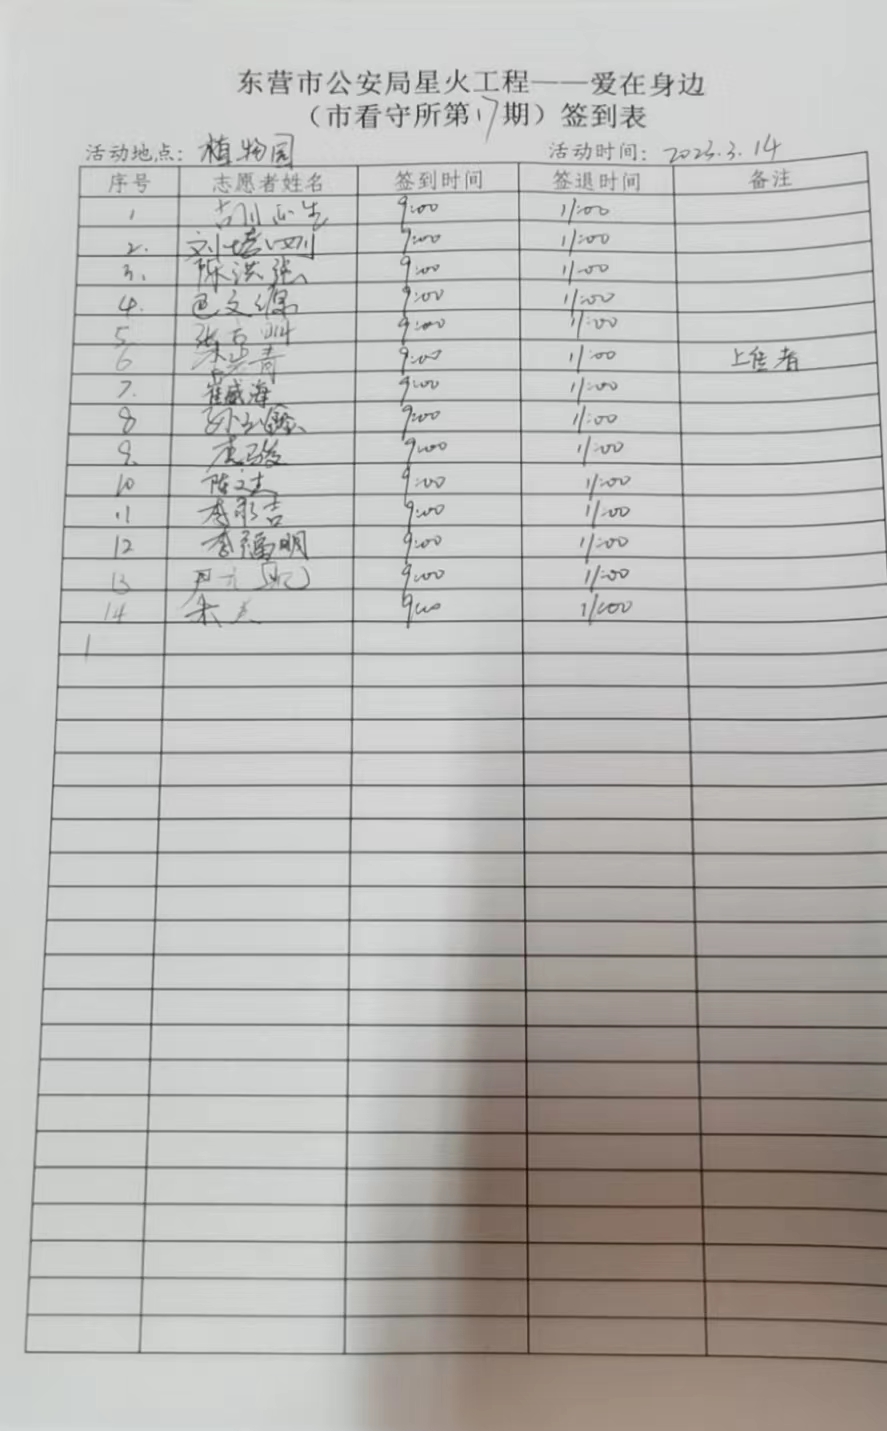 东营市公安局星火工程——爱在身边
（市看守所第17期）签到表
活动地点：植物园 活动时间：2023.3.14
序号 志愿者姓名 签到时间 签退时间 备注
1 9:00 11:00
2. 9:00 11:00
3. 陈洪强 9:00 11:00
4. 9:00 11:00
5 9:00 11:00
6 9:00 11:00
7. 崔威海 9:00 11:00
8 9:00 11:00
9. 9:00 11:00
10 陈文杰 9:00 11:00
11 李永吉 9:00 11:00
12 李福明 9:00 11:00
13 9:00 11:00
14 9:00 11:00